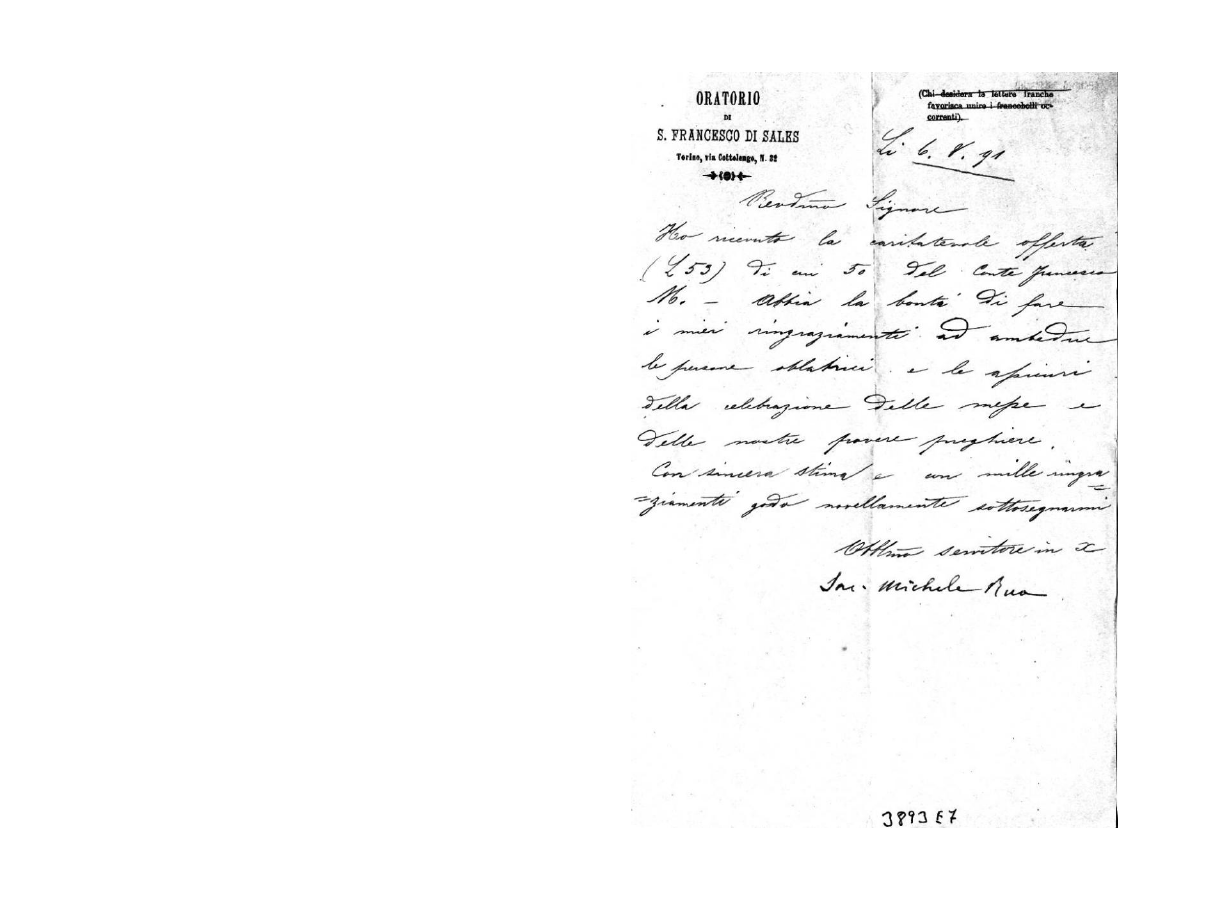 ORATORIO
DI
S. FRANCESCO DI SALES
Torino, via Cottolengo, N. 32
(Chi desidera le lettere franche
favorisca unire i francobolli oc-
correnti).
Li 6. V. 91
Revdmo Signore
Ho ricevuto la caritatevole offerta
(L 53) di cui 50 del Conte Francesco
M. - Abbia la bontà di fare
i miei ringraziamenti ad ambedue
le persone oblatrici e le assicuri
della celebrazione delle messe e
delle nostre povere preghiere.
Con sincera stima e con mille ringra=
=ziamenti godo novellamente sottosegnarmi
Obblmo servitore in X
Sac. Michele Rua
3893 E7